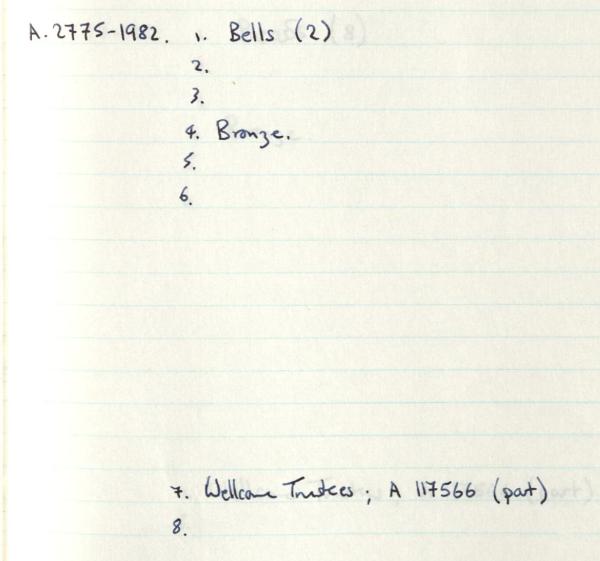 A.2775-1982. 1. Bells (2)
2.
3.
4. Bronze.
5.
6.
7. Wellcome Trustees; A 117566 (part)
8.